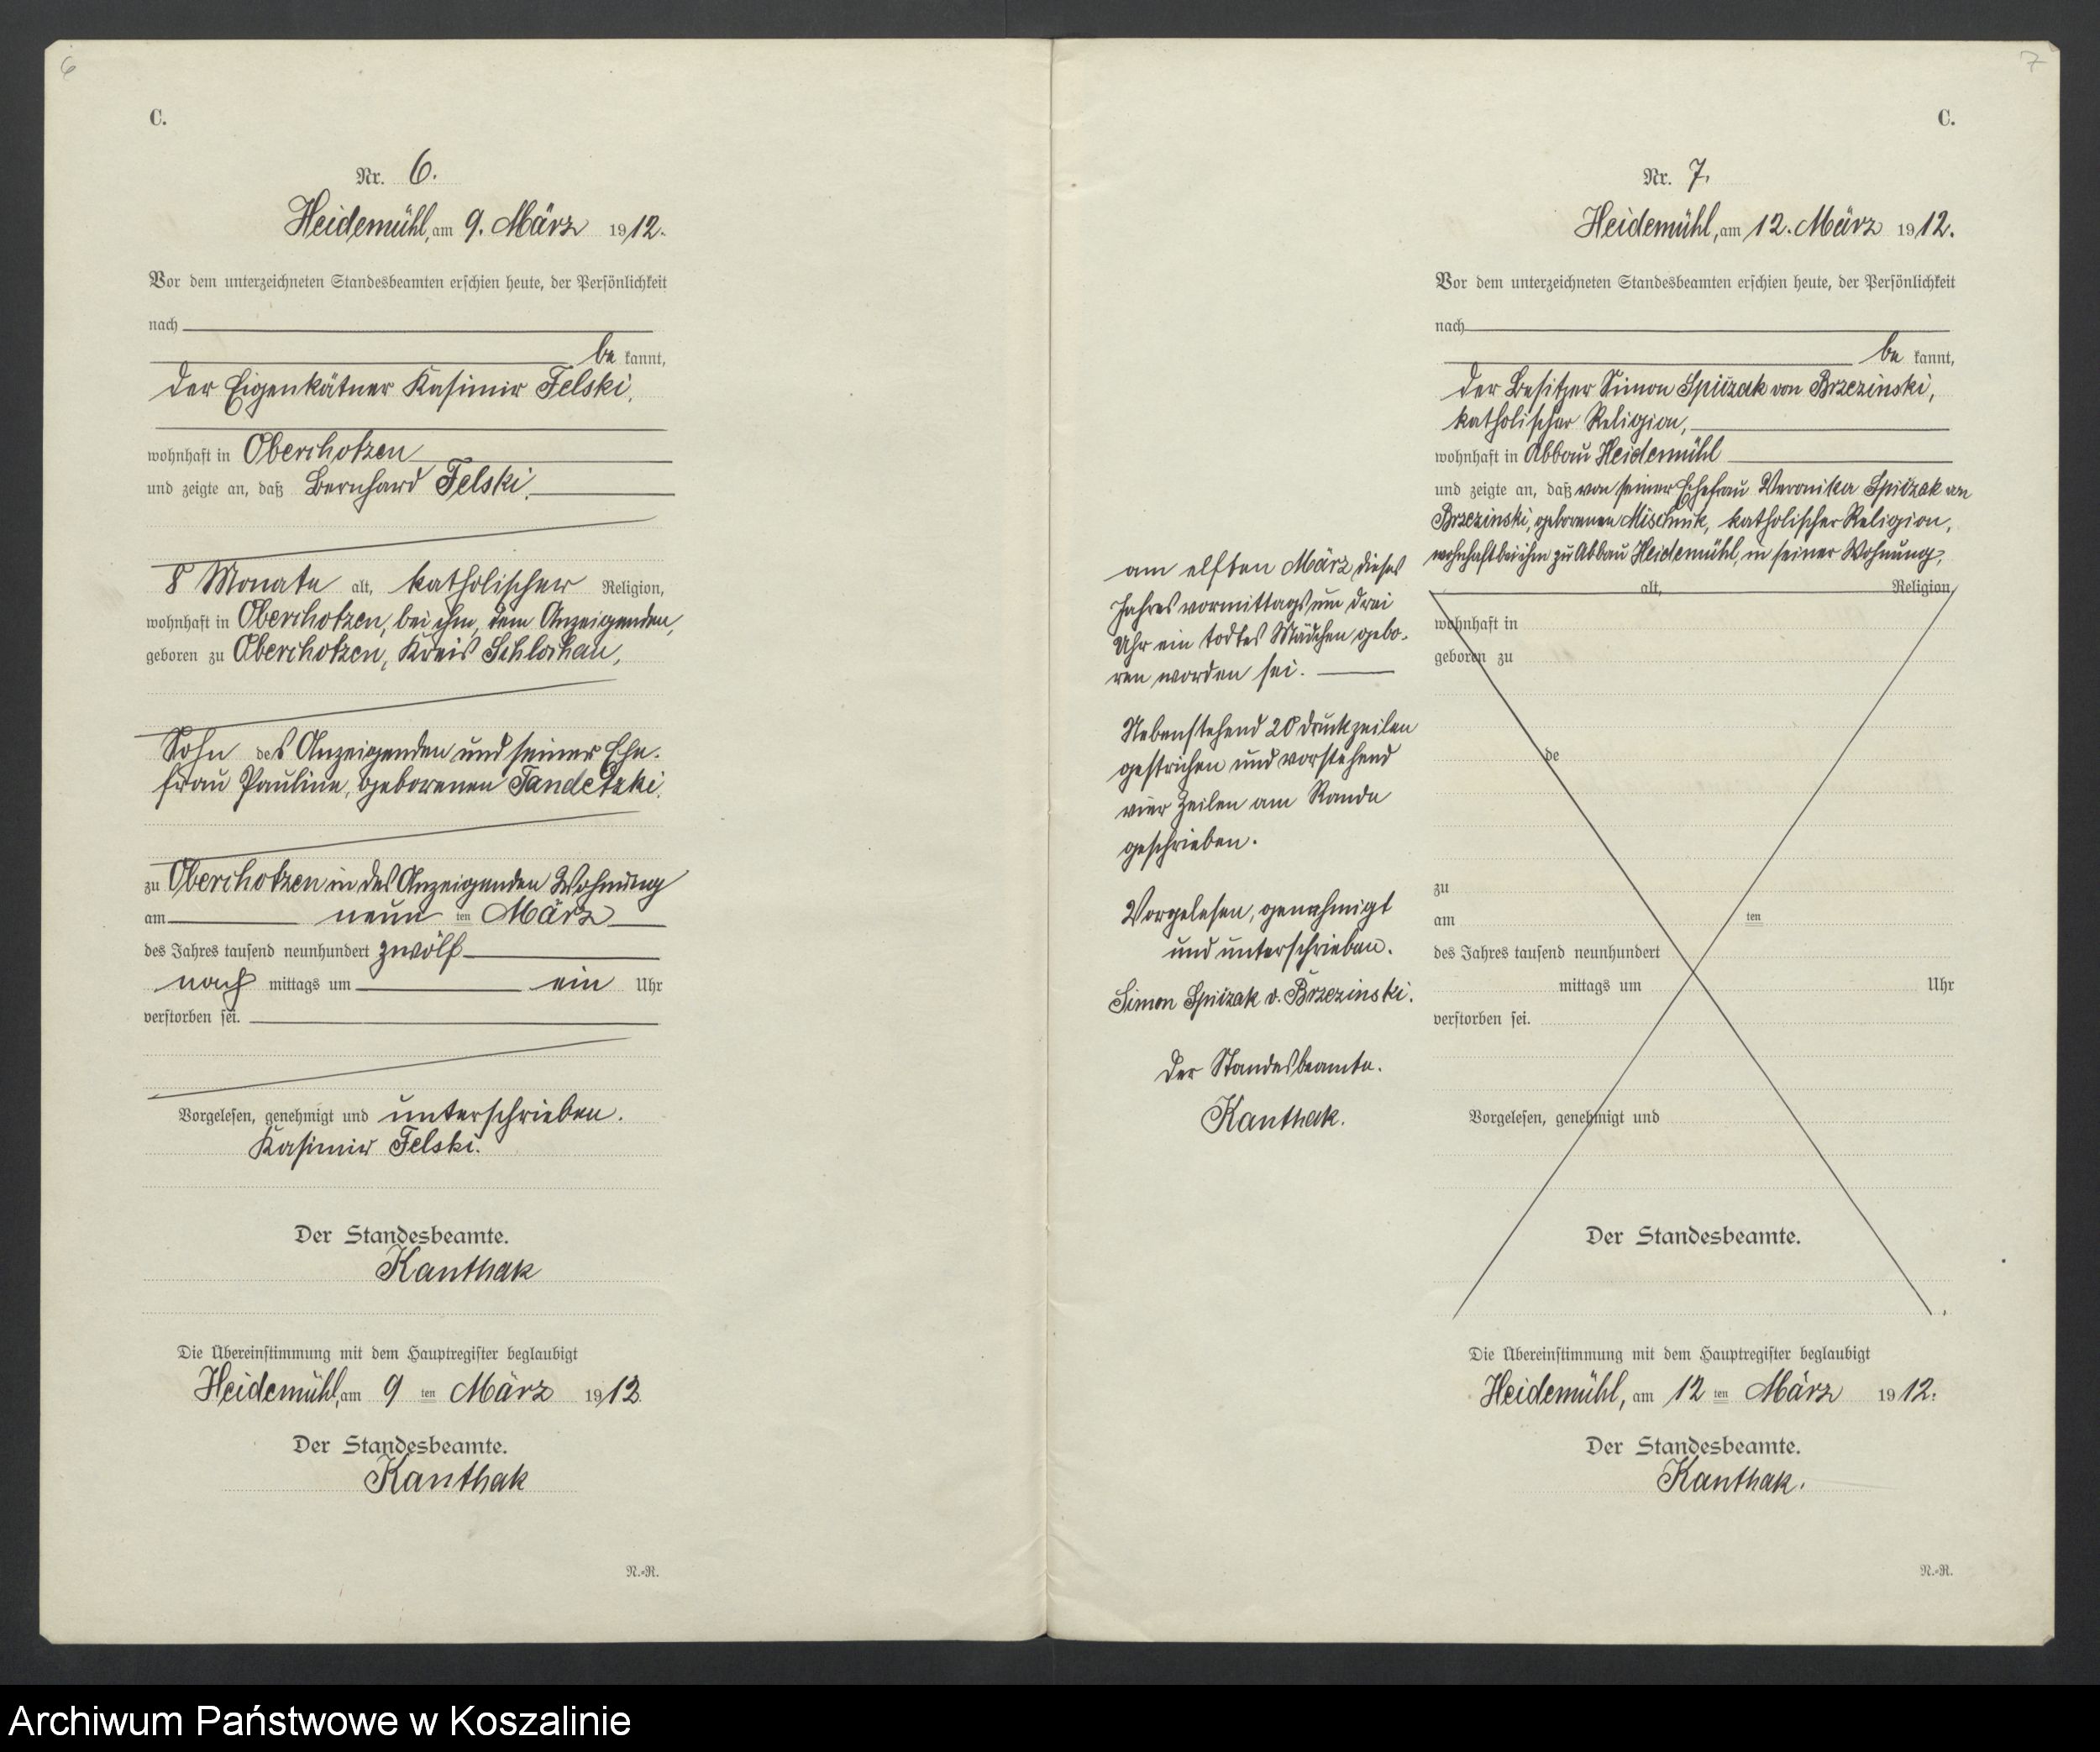 6
C.
Nr. 6.
Heidemühl, am 9. März 1912.
Vor dem unterzeichneten Standesbeamten erschien heute, der Persönlichkeit
nach
be kannt,
der Eigenkätner Kasimir Felski,
wohnhaft in Oberchotzen
und zeigte an, daß Bernhard Felski,
8 Monate alt, katholischer Religion,
wohnhaft in Oberchotzen, bei ihm, dem Anzeigenden,
geboren zu Oberchotzen, Kreis Schlochau,
Sohn des Anzeigenden und seiner Ehe-
frau Pauline, geborenen Tandetzki,
zu Oberchotzen in des Anzeigenden Wohnung
am neun ten März
des Jahres tausend neunhundert zwölf
nach mittags um ein Uhr
verstorben sei.
Vorgelesen, genehmigt und unterschrieben.
Kasimir Felski.
Der Standesbeamte.
Kanthak
Die Übereinstimmung mit dem Hauptregister beglaubigt
Heidemühl, am 9 ten März 1912
Der Standesbeamte.
Kanthak
N.-R.
7
C.
Nr. 7.
Heidemühl, am 12. März 1912.
Vor dem unterzeichneten Standesbeamten erschien heute, der Persönlichkeit
nach
be kannt,
der Besitzer Simon Spiczak von Brzezinski,
katholischer Religion,
wohnhaft in Abbau Heidemühl
und zeigte an, daß von seiner Ehefrau Veronika Spiczak von
Brzezinski, geborenen Mischnik, katholischer Religion,
wohnhaft bei ihm zu Abbau Heidemühl, in seiner Wohnung,
am elften März dieses
Jahres vormittags um drei
Uhr ein todtes Mädchen gebo-
ren worden sei.
Nebenstehend 20 Druckzeilen
gestrichen und vorstehend
vier Zeilen am Rande
geschrieben.
Vorgelesen, genehmigt
und unterschrieben.
Simon Spiczak v. Brzezinski.
Der Standesbeamte.
Kanthak.
alt, Religion
wohnhaft in
geboren zu
de
zu
am ten
des Jahres tausend neunhundert
mittags um Uhr
verstorben sei.
Vorgelesen, genehmigt und
Der Standesbeamte.
Die Übereinstimmung mit dem Hauptregister beglaubigt
Heidemühl, am 12 ten März 1912.
Der Standesbeamte.
Kanthak.
N.-R.
Archiwum Państwowe w Koszalinie